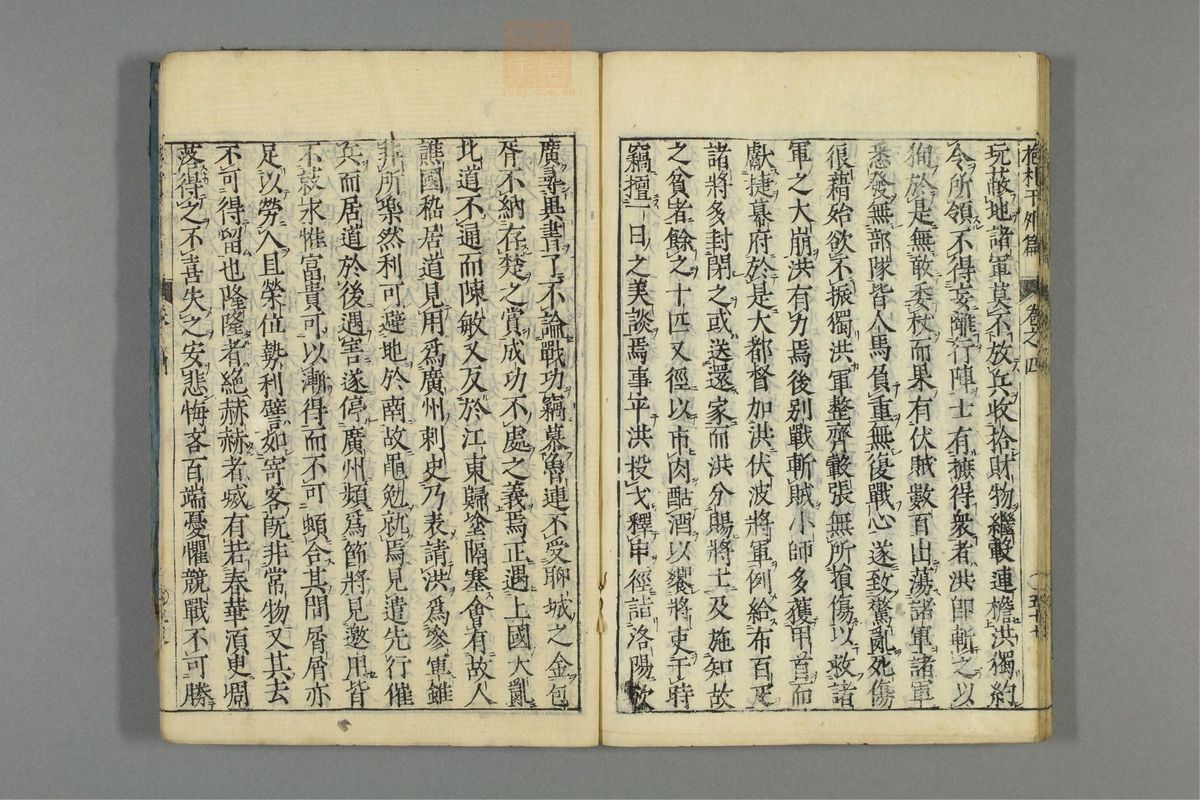 抱朴子外篇 卷之四 五十七
玩蔽地諸軍莫不放兵收拾財物繼轂連檐洪獨約
令所領不得妄離行陣士有摭得衆者洪即斬之以
狥於是無敢委杖而果有伏賊數百出蕩諸軍諸軍
悉發無部隊皆人馬負重無復戰心遂致驚亂死傷
很藉始欲不振獨洪軍整齊轂張無所損傷以救諸
軍之大崩洪有力焉後别戰斬賊小帥多獲甲首而
獻捷幕府於是大都督加洪伏波將軍例給布百疋
諸將多封閉之或送還家而洪分賜將士及施知故
之貧者餘之十匹又徑以市肉酤酒以饗將吏于時
竊擅一日之美談焉事平洪投戈釋甲徑詣洛陽欲
廣尋異書了不論戰功竊慕魯連不受聊城之金包
胥不納存楚之賞成功不處之義焉正遇上國大亂
北道不通而陳敏又反於江東歸塗隔塞會有故人
譙國嵇居道見用爲廣州刺史乃表請洪爲參軍雖
非所樂然利可避地於南故黽勉就焉見遣先行催
兵而居道於後遇害遂停廣州頻爲節將見邀用皆
不就永惟富貴可以漸得而不可頓合其間屑屑亦
足以勞人且榮位勢利譬如寄客旣非常物又其去
不可得留也隆隆者絕赫赫者滅有若春華湏臾凋
落得之不喜失之安悲悔吝百端憂懼兢戰不可勝